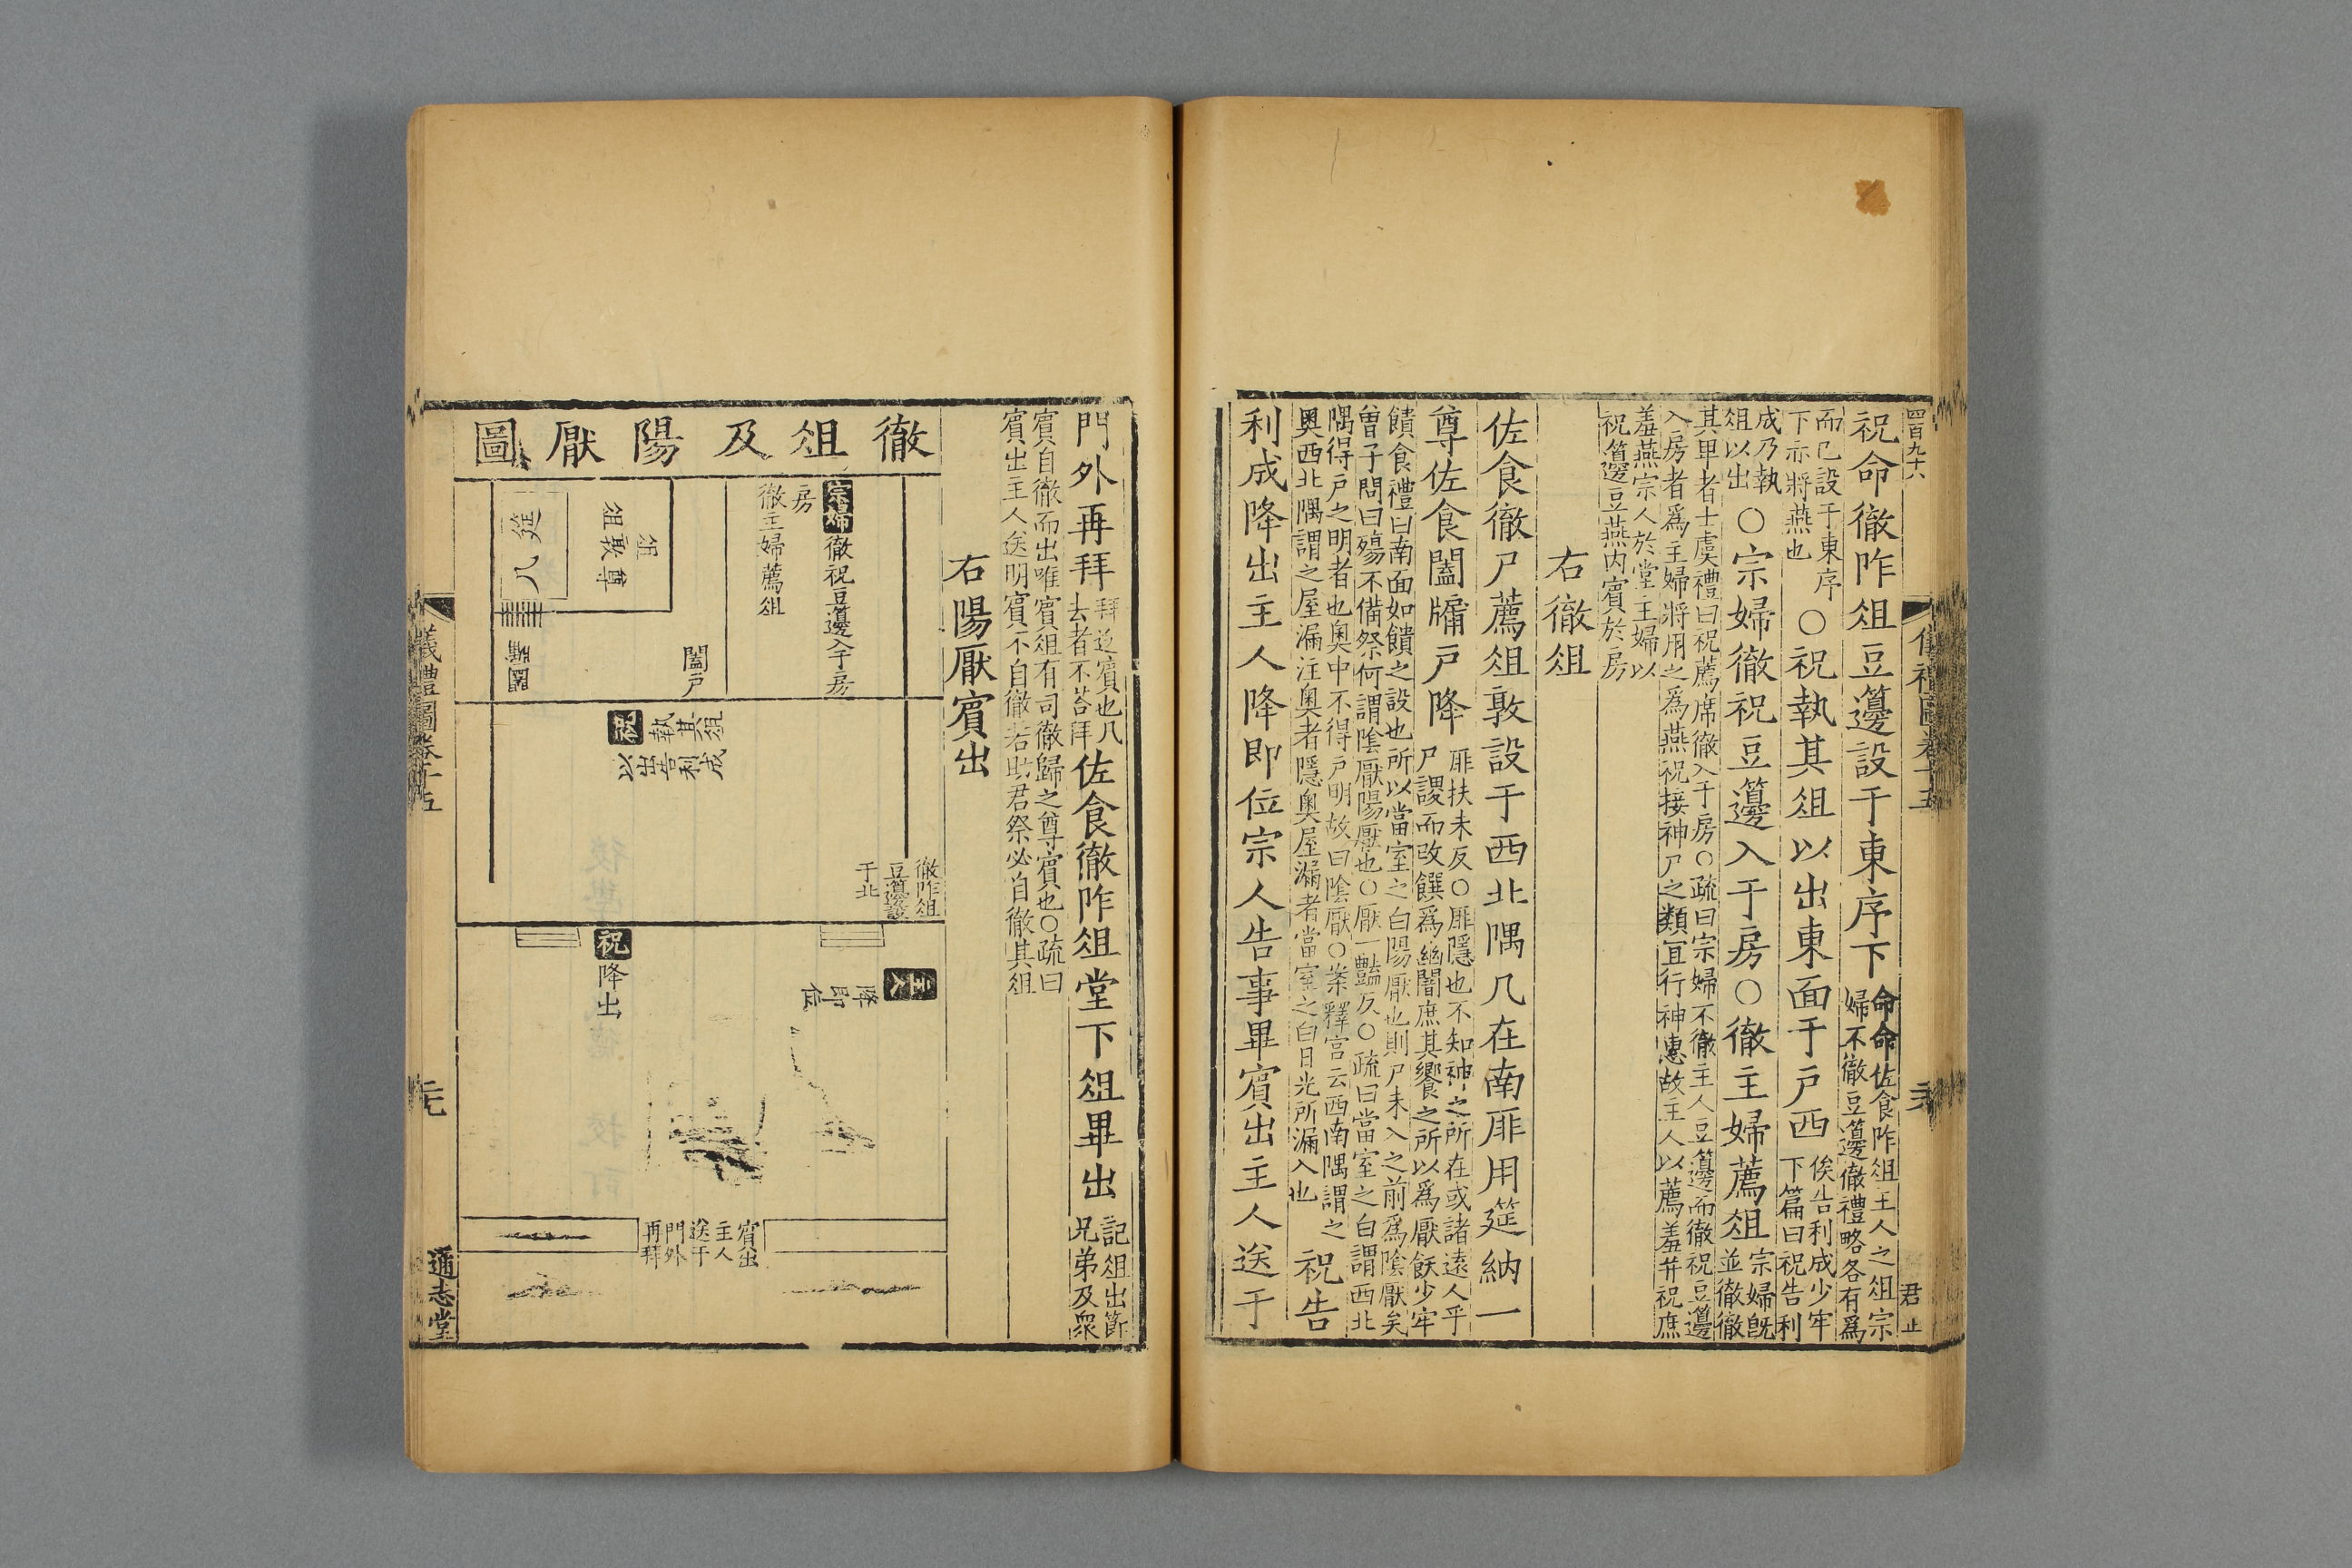 四百九十六
祝命徹阼俎豆籩設于東序下 命命佐食阼俎主人之俎宗
婦不徹豆籩徹禮略各有爲
而已設于東序
下亦將燕也 ○祝執其俎以出東面于戶西 俟告利成少牢
下篇曰祝告利
成乃執
俎以出 ○宗婦徹祝豆籩入于房○徹主婦薦俎 宗婦旣
並徹徹
其卑者士虞禮曰祝薦席徹入于房○疏曰宗婦不徹主人豆籩而徹祝豆籩
入房者爲主婦將用之爲燕祝接神尸之類宜行神惠故主人以薦羞并祝庶
羞燕宗人於堂主婦以
祝籩豆燕內賓於房
右徹俎
佐食徹尸薦俎敦設于西北隅几在南厞用筵納一
尊佐食闔牖戶降 厞扶未反○厞隱也不知神之所在或諸遠人乎
尸謖而改饌爲幽闇庶其饗之所以爲厭飫少牢
饋食禮曰南面如饋之設也所以當室之白陽厭也則尸未入之前爲陰厭矣
曾子問曰殤不備祭何謂陰厭陽厭也○厭一豔反○疏曰當室之白謂西北
隅得戶之明者也奧中不得戶明故曰陰厭○案釋宮云西南隅謂之
奧西北隅謂之屋漏注奧者隱奧屋漏者當室之白日光所漏入也 祝告
利成降出主人降即位宗人告事畢賓出主人送于
儀禮圖卷十五
君止
門外再拜 拜送賓也凡
去者不荅拜 佐食徹阼俎堂下俎畢出 記俎出節
兄弟及衆
賓自徹而出唯賓俎有司徹歸之尊賓也○疏曰
賓出主人送明賓不自徹若助君祭必自徹其俎
右陽厭賓出
徹俎及陽厭圖
宗婦徹祝豆籩入于房
房
徹主婦薦俎
闔戶
俎
俎敦尊
筵
几
徹阼俎
豆籩設
于北
祝
執其俎
以出告利成
主人
降即位
祝降出
賓出
主人
送于
門外
再拜
儀禮圖卷十五
通志堂